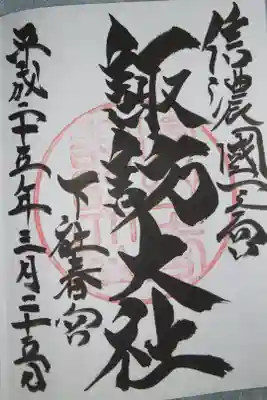 信濃國一之宮
諏訪大社
下社春宮
平成二十五年三月二十五日